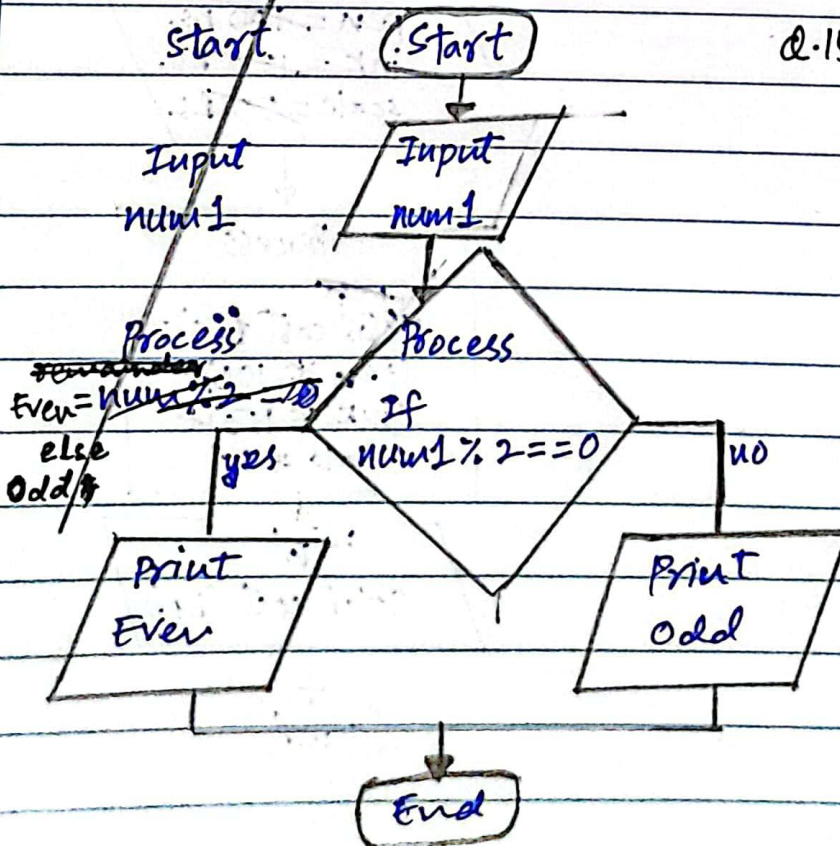 Start
Input
num1
Process
remainder
Even = num%2
else
Odd
Start
Q.1
Input
num1
Process
If
num1 % 2 == 0
yes
no
Print
Even
Print
Odd
End